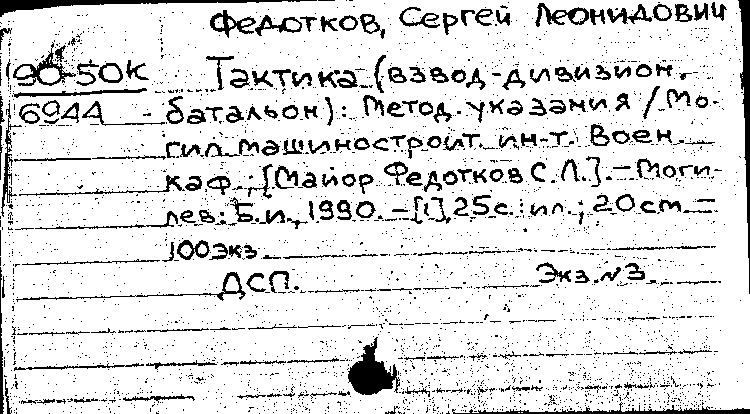 Федотков, Сергей Леонидович
90-50К Тактика (взвод-дивизион.
6944 батальон): Метод. указания / Мо-
гил. машиностроит. ин-т. Воен.
каф.; [Майор Федотков С.Л.]. – Моги-
лев: Б.и., 1990. – [1], 25с.: ил.; 20см. –
100экз.
ДСП. Экз. №3.